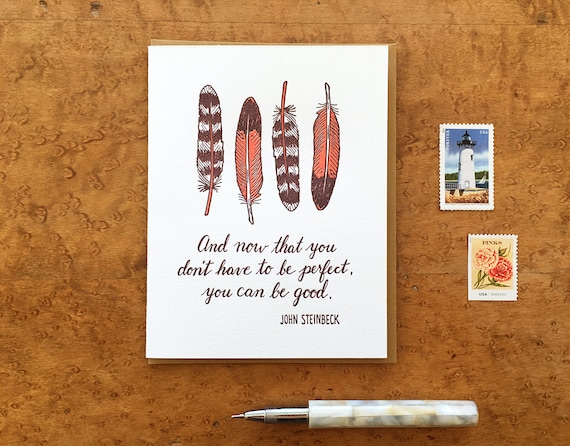 And now that you
don't have to be perfect,
you can be good.
JOHN STEINBECK
USA
PINKS
USA
forever